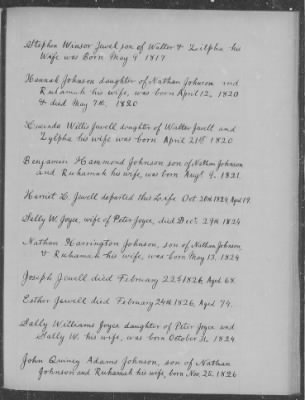 Stephen Winsor Jewel son of Walter & Zilpha his
Wife was Born May 9 1817
Hannah Johnson daughter of Nathan Johnson and
Ruhamah his wife, was born April 12, 1820
& died May 7th, 1820
Lucinda Willis Jewell daughter of Walter Jewell and
Zylpha his wife was born April 21st 1820
Benjamin Hammond Johnson son of Nathan Johnson
and Ruhamah his wife, was born Augt 9. 1821.
Harriet L. Jewell departed this Life Oct 20th 1824, Aged 19.
Sally W. Joyce, wife of Peter Joyce, died Dec. 29th 1824
Nathan Harrington Johnson, son of Nathan Johnson,
& Ruhamah his wife, was born May 13, 1824
Joseph Jewell died February 22d 1826, Aged 68.
Esther Jewell died February 24th 1826, Aged 74.
Sally Williams Joyce daughter of Peter Joyce and
Sally W. his wife, was born October 31, 1824
John Quincy Adams Johnson, son of Nathan
Johnson and Ruhamah his wife, born Nov. 25, 1826